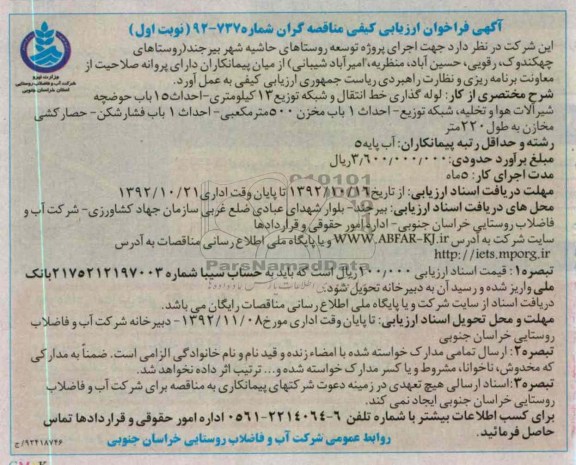 آگهی فراخوان ارزیابی کیفی مناقصه گران شماره ۷۳۷-۹۲ (نوبت اول)
این شرکت در نظر دارد جهت اجرای پروژه توسعه روستاهای حاشیه شهر بیرجند(روستاهای
چهکندوک، رقویی، حسین آباد، منظریه، امیرآباد شیبانی) از میان پیمانکاران دارای پروانه صلاحیت از
معاونت برنامه ریزی و نظارت راهبردی ریاست جمهوری ارزیابی کیفی به عمل آورد.
شرح مختصری از کار: لوله گذاری خط انتقال و شبکه توزیع ۱۳ کیلومتری-احداث ۱۵ باب حوضچه
شیرآلات هوا و تخلیه، شبکه توزیع- احداث ۱ باب مخزن ۵۰۰ مترمکعبی- احداث ۱ باب فشارشکن- حصارکشی
مخازن به طول ۲۲۰ متر
رشته و حداقل رتبه پیمانکاران: آب پایه ۵
مبلغ برآورد حدودی: ۳/۶۰۰/۰۰۰/۰۰۰ ریال
مدت اجرای کار: ۵ماه
مهلت دریافت اسناد ارزیابی: از تاریخ ۱۳۹۲/۱۰/۱۶ تا پایان وقت اداری ۱۳۹۲/۱۰/۲۱
محل های دریافت اسناد ارزیابی: بیرجند- بلوار شهدای عبادی ضلع غربی سازمان جهاد کشاورزی- شرکت آب و
فاضلاب روستایی خراسان جنوبی- اداره امور حقوقی و قراردادها
سایت شرکت به آدرس WWW.ABFAR-KJ.ir و یا پایگاه ملی اطلاع رسانی مناقصات به آدرس
http://iets.mporg.ir
تبصره۱: قیمت اسناد ارزیابی ۱۰۰/۰۰۰ ریال است که باید به حساب سیبا شماره ۲۱۷۵۲۱۲۱۹۷۰۰۳ بانک
ملی واریز شده و رسید آن به دبیرخانه تحویل شود.
دریافت اسناد از سایت شرکت و یا پایگاه ملی اطلاع رسانی مناقصات رایگان می باشد.
مهلت و محل تحویل اسناد ارزیابی: تا پایان وقت اداری مورخ ۱۳۹۲/۱۱/۰۸- دبیرخانه شرکت آب و فاضلاب
روستایی خراسان جنوبی
تبصره۲: ارسال تمامی مدارک خواسته شده با امضاء زنده و قید نام و نام خانوادگی الزامی است. ضمناً به مدارکی
که مخدوش، ناخوانا، مشروط و یا کسر مدارک خواسته شده و... ترتیب اثر داده نخواهد شد.
تبصره۳: اسناد ارسالی هیچ تعهدی در زمینه دعوت شرکتهای پیمانکاری به مناقصه برای شرکت آب و فاضلاب
روستایی خراسان جنوبی ایجاد نمی کند.
برای کسب اطلاعات بیشتر با شماره تلفن ۶-۲۲۱۴۰۶۴-۰۵۶۱ اداره امور حقوقی و قراردادها تماس
حاصل فرمائید.
روابط عمومی شرکت آب و فاضلاب روستایی خراسان جنوبی
۹۲۴۱۸۷۴۶/ج
وزارت نیرو
شرکت آب و فاضلاب روستایی
استان خراسان جنوبی
ParsNamadData